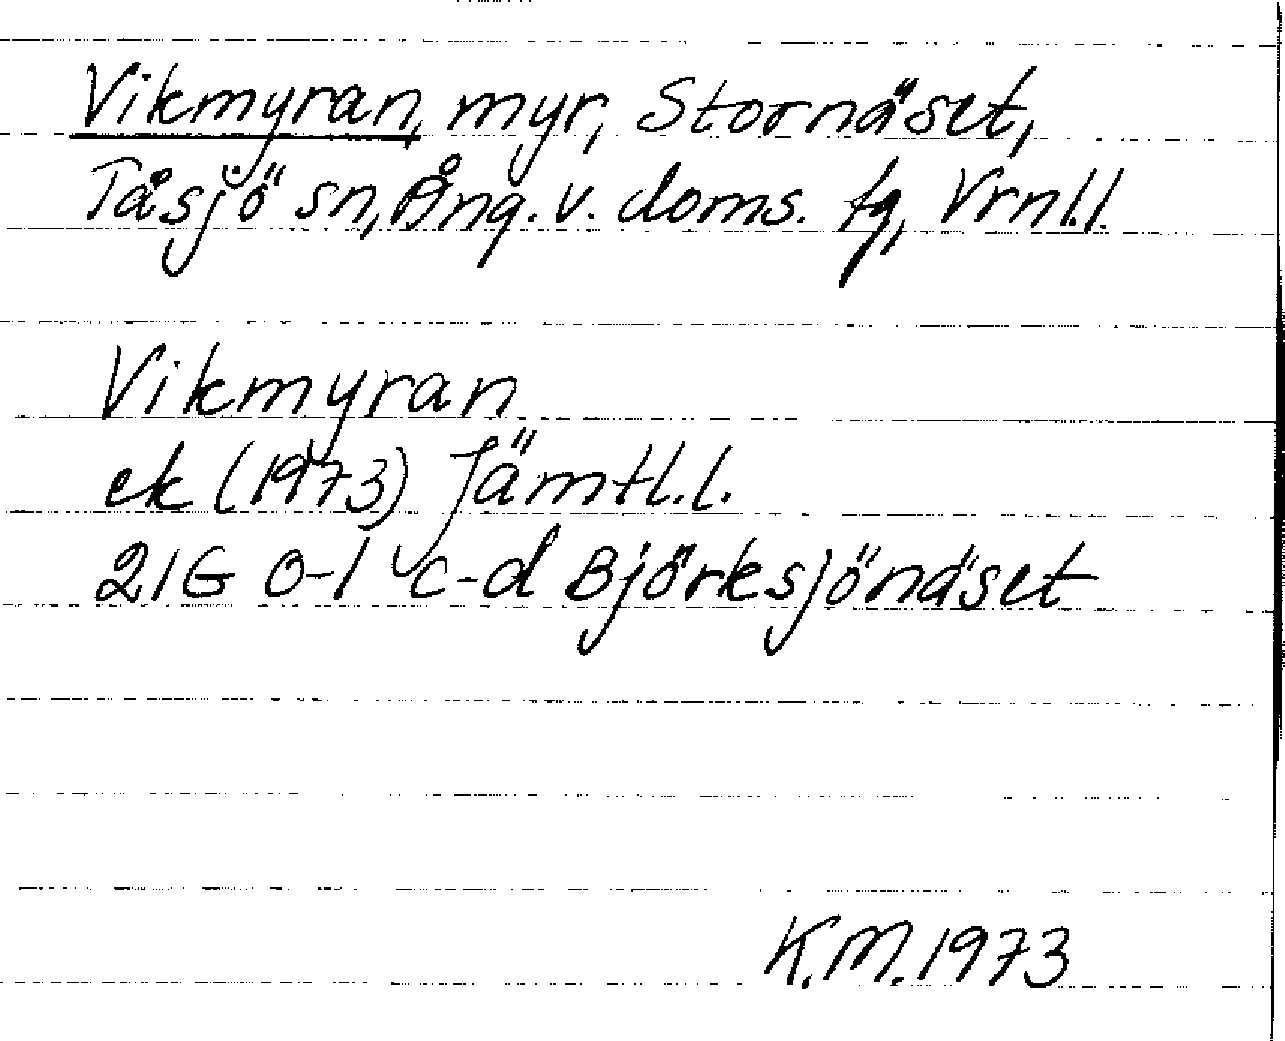 Vikmyran, myr, Stornäset,
Tåsjö sn, Ång. v. doms. tg, Vrnl.l.
Vikmyran
ek (1973) Jämtl.l.
21G 0-1 c-d Björksjönäset
K.M. 1973